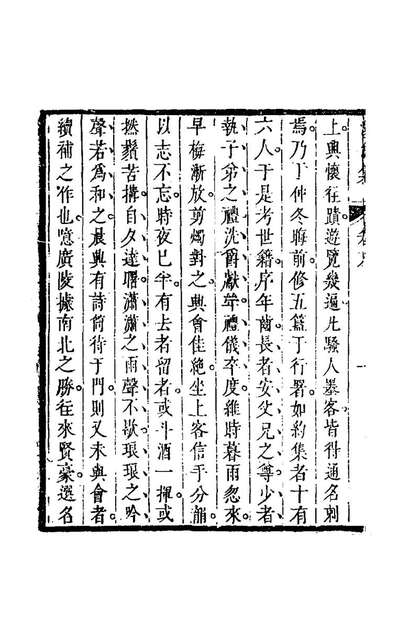 上興懷往蹟遊覽幾遍凡騷人墨客皆得通名刺
焉乃丁仲冬晦前修五簋于行署如約集者十有
六人于是考世籍序年齒長者安父兄之尊少者
執子弟之禮洗爵獻斝禮儀卒度維時暮雨忽來
早梅漸放剪燭對之興會佳絶坐上客信手分韻
以志不忘時夜已半有去者留者或斗酒一揮或
撚鬚苦搆自夕達曙瀟瀟之雨聲不歇琅琅之吟
聲若為和之晨興有詩筒待于門則又未與會者
續補之作也噫廣陵據南北之勝往來賢豪選名